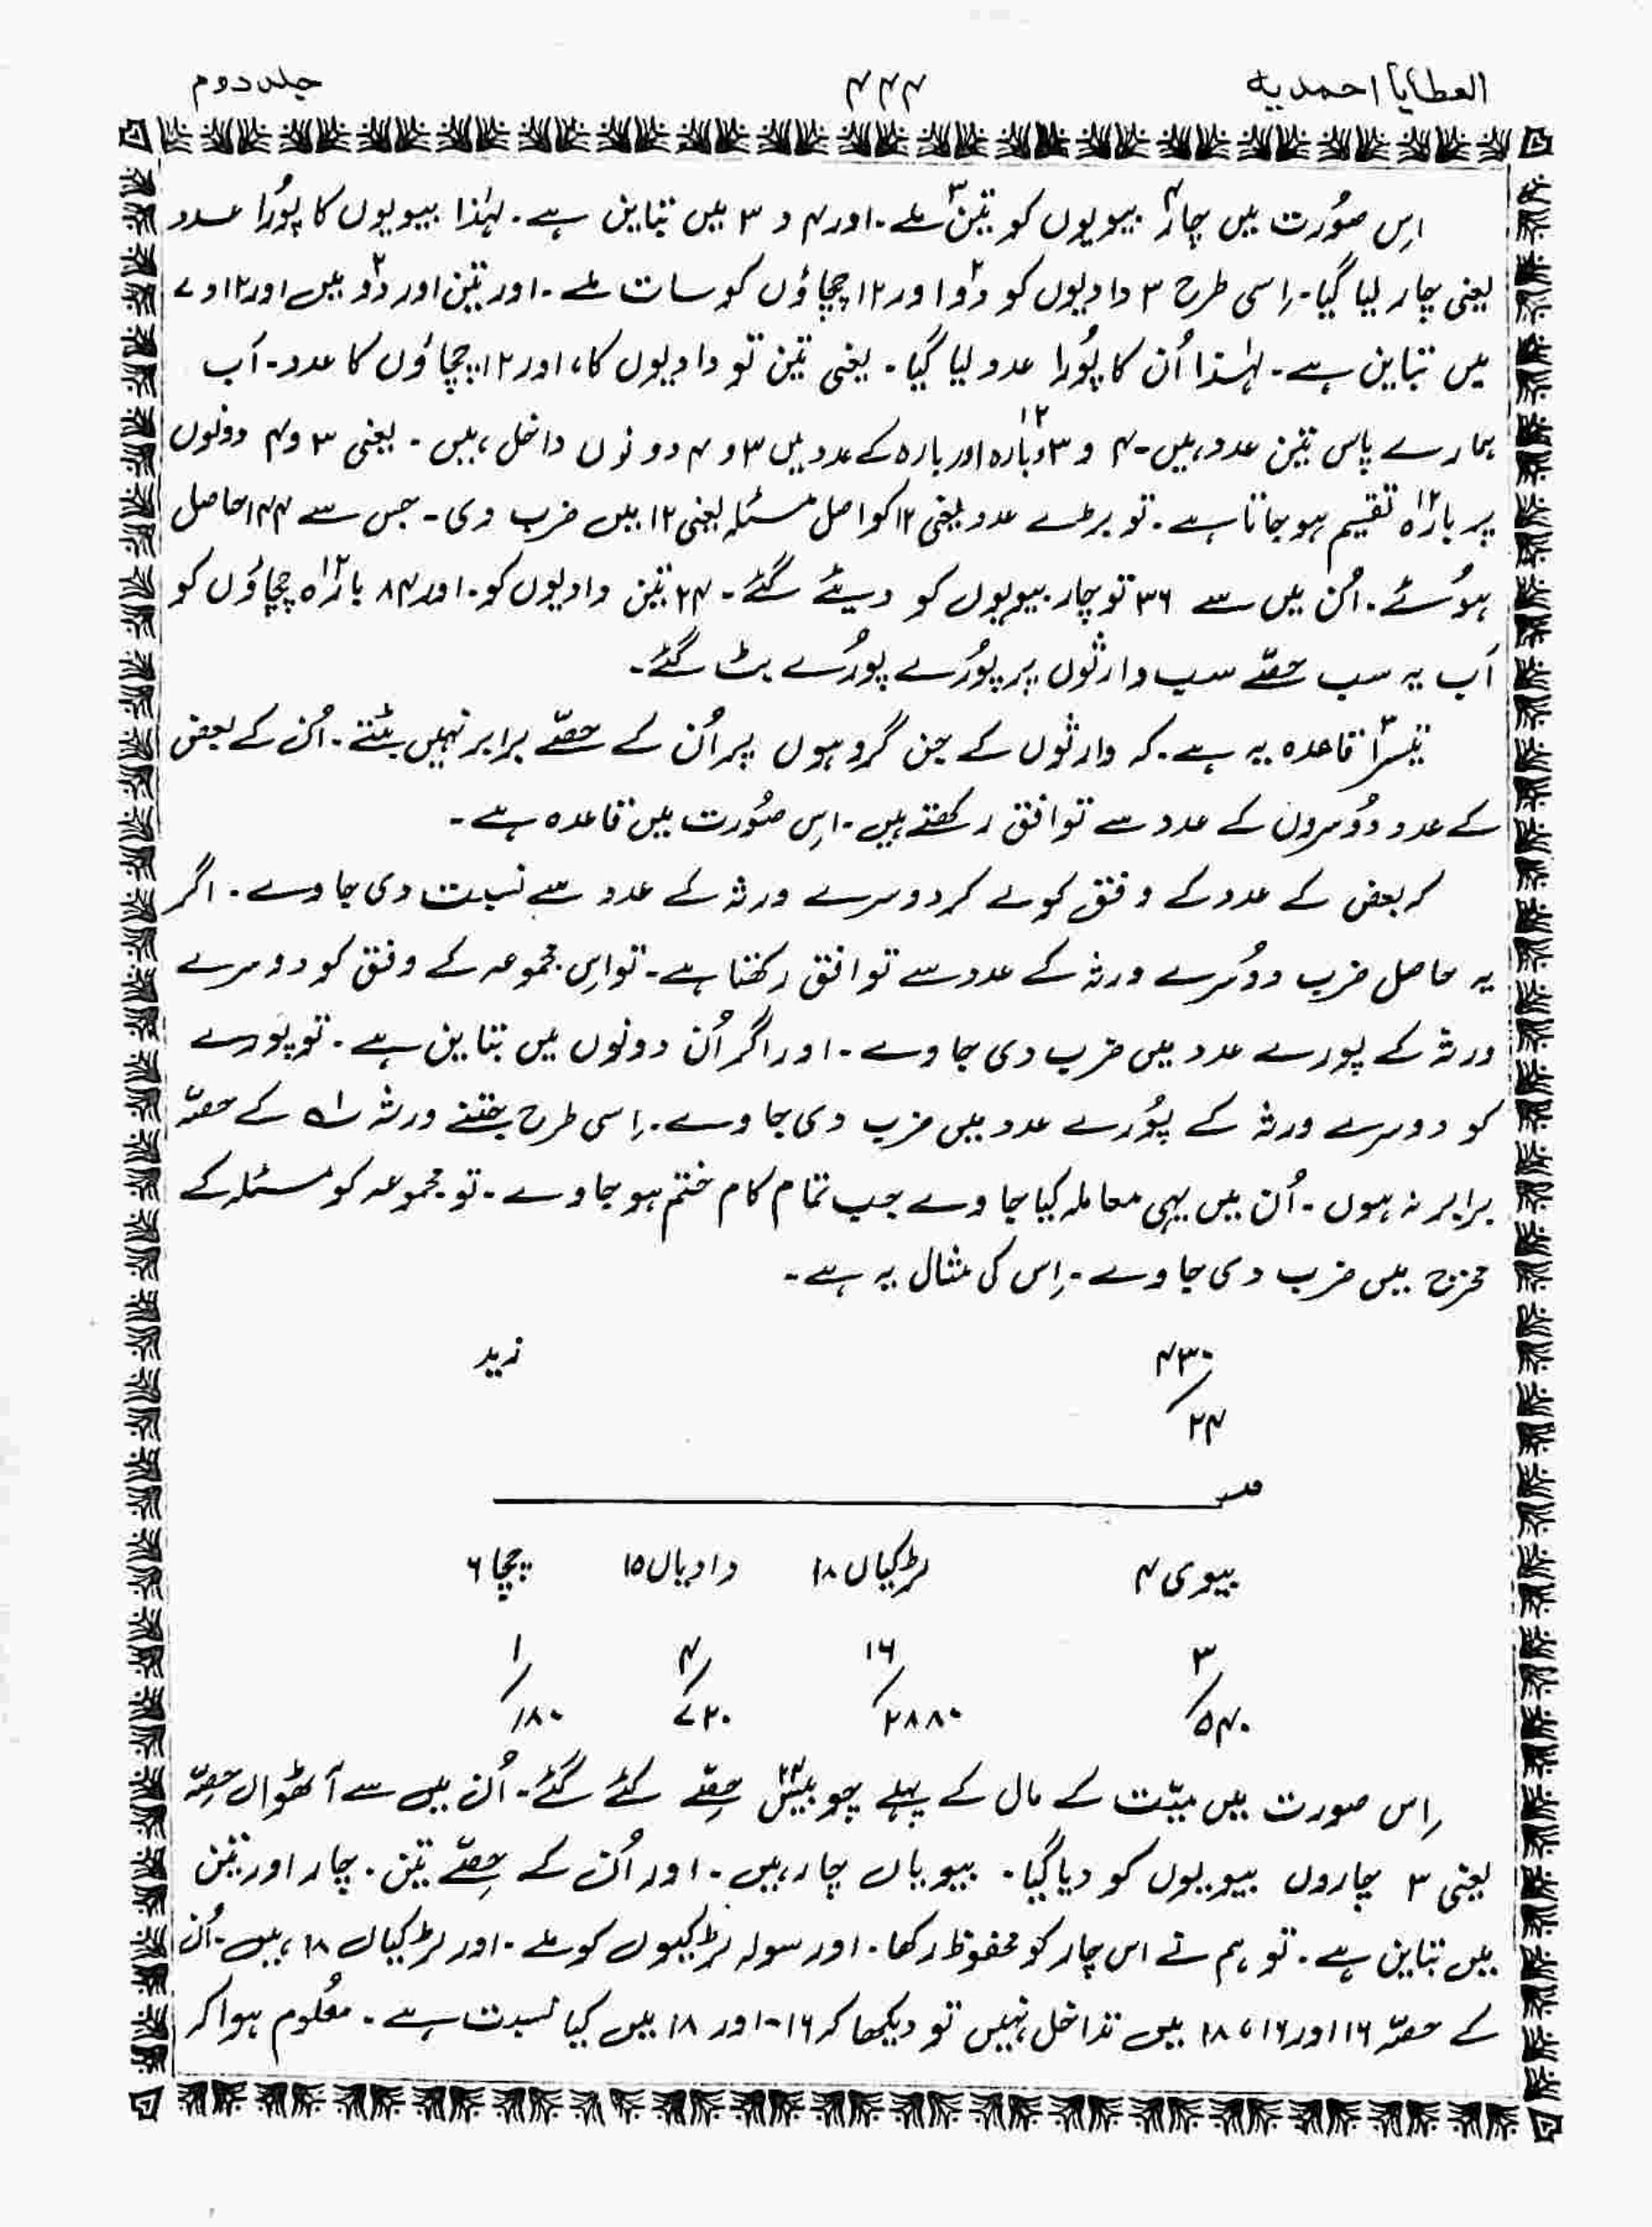 العطایا احمدیه ۴۴۴ جلد دوم
اِس صُورت میں چار۴ بیویوں کو تین۳ ملے۔ اور ۴ و ۳ میں تباین ہے۔ لہٰذا بیویوں کا پُورا عدد
یعنی چار لیا گیا۔ اِسی طرح ۳ دادیوں کو دو۲ اور ۱۲ چچاؤں کو سات ملے۔ اور تین اور دو۲ میں اور ۱۲ و ۷
میں تباین ہے۔ لہٰذا اُن کا پُورا عدد لیا گیا۔ یعنی تین تو دادیوں کا، اور ۱۲ چچاؤں کا عدد۔ اَب
ہمارے پاس تین عدد ہیں۔ ۴ و ۳ و بارہ۱۲ اور بارہ کے عدد میں ۳ و ۴ دونوں داخل ہیں۔ یعنی ۳ و ۴ دونوں
پر بارہ۱۲ تقیم ہو جاتا ہے۔ تو بڑے عدد یعنی ۱۲ کو اصل مسئلہ یعنی ۱۲ میں ضرب دی۔ جس سے ۱۴۴ حاصل
ہوُئے۔ اُن میں سے ۳۶ تو چار بیویوں کو دیئے گئے۔ ۲۴ تین دادیوں کو۔ اور ۸۴ بارہ۱۲ چچاؤں کو
اَب یہ سب حصّے سب وارثوں پر پورُے پورُے بٹ گئے۔
تیسرا۳ قاعدہ یہ ہے۔ کہ وارثوں کے جن گروہوں پر اُن کے حصّے برابر نہیں بٹتے۔ اُن کے بعض
کے عدد دوُسروں کے عدد سے توافق رکھتے ہیں۔ اِس صُورت میں قاعدہ ہے۔
کہ بعض کے عدد کے وفق کو لے کر دوسرے ورثہ کے عدد سے نسبت دی جاوے۔ اگر
یہ حاصل ضرب دوُسرے ورثہ کے عدد سے توافق رکھتا ہے۔ تو اِس مجموعہ کے وفق کو دوسرے
ورثہ کے پورے عدد میں ضرب دی جاوے۔ اور اگر اُن دونوں میں تباین ہے۔ تو پورے
کو دوسرے ورثہ کے پُورے عدد میں ضرب دی جاوے۔ اِسی طرح جتنے ورثہ ان کے حصّہ
برابر نہ ہوں۔ اُن میں یہی معاملہ کیا جاوے جب تمام کام ختم ہو جاوے۔ تو مجموعہ کو مسئلہ کے
مخرج میں ضرب دی جاوے۔ اِس کی مثال یہ ہے۔
۴۳۰ زید
۲۴
مسـ
بیوی ۴ لڑکیاں ۱۸ دادیاں ۱۵ چچا ۶
۳ ۱۶ ۴ ۱
۵۴۰ ۲۸۸۰ ۷۲۰ ۱۸۰
اِس صورت میں میّت کے مال کے پہلے چوبیس۲۴ حِصّے کئے گئے۔ اُن میں سے آٹھواں حِصّہ
یعنی ۳ چاروں بیویوں کو دیا گیا۔ بیویاں چار ہیں۔ اور اُن کے حِصّے تین۔ چار اور تین
میں تباین ہے۔ تو ہم نے اس چار کو محفوظ رکھا۔ اور سولہ لڑکیوں کو ملے۔ اور لڑکیاں ۱۸ ہیں۔ اُن
کے حصّہ ۱۶ اور ۱۶، ۱۸ میں تداخل نہیں تو دیکھا کہ ۱۶۔ اور ۱۸ میں کیا نسبت ہے۔ معُلوم ہوا کہ